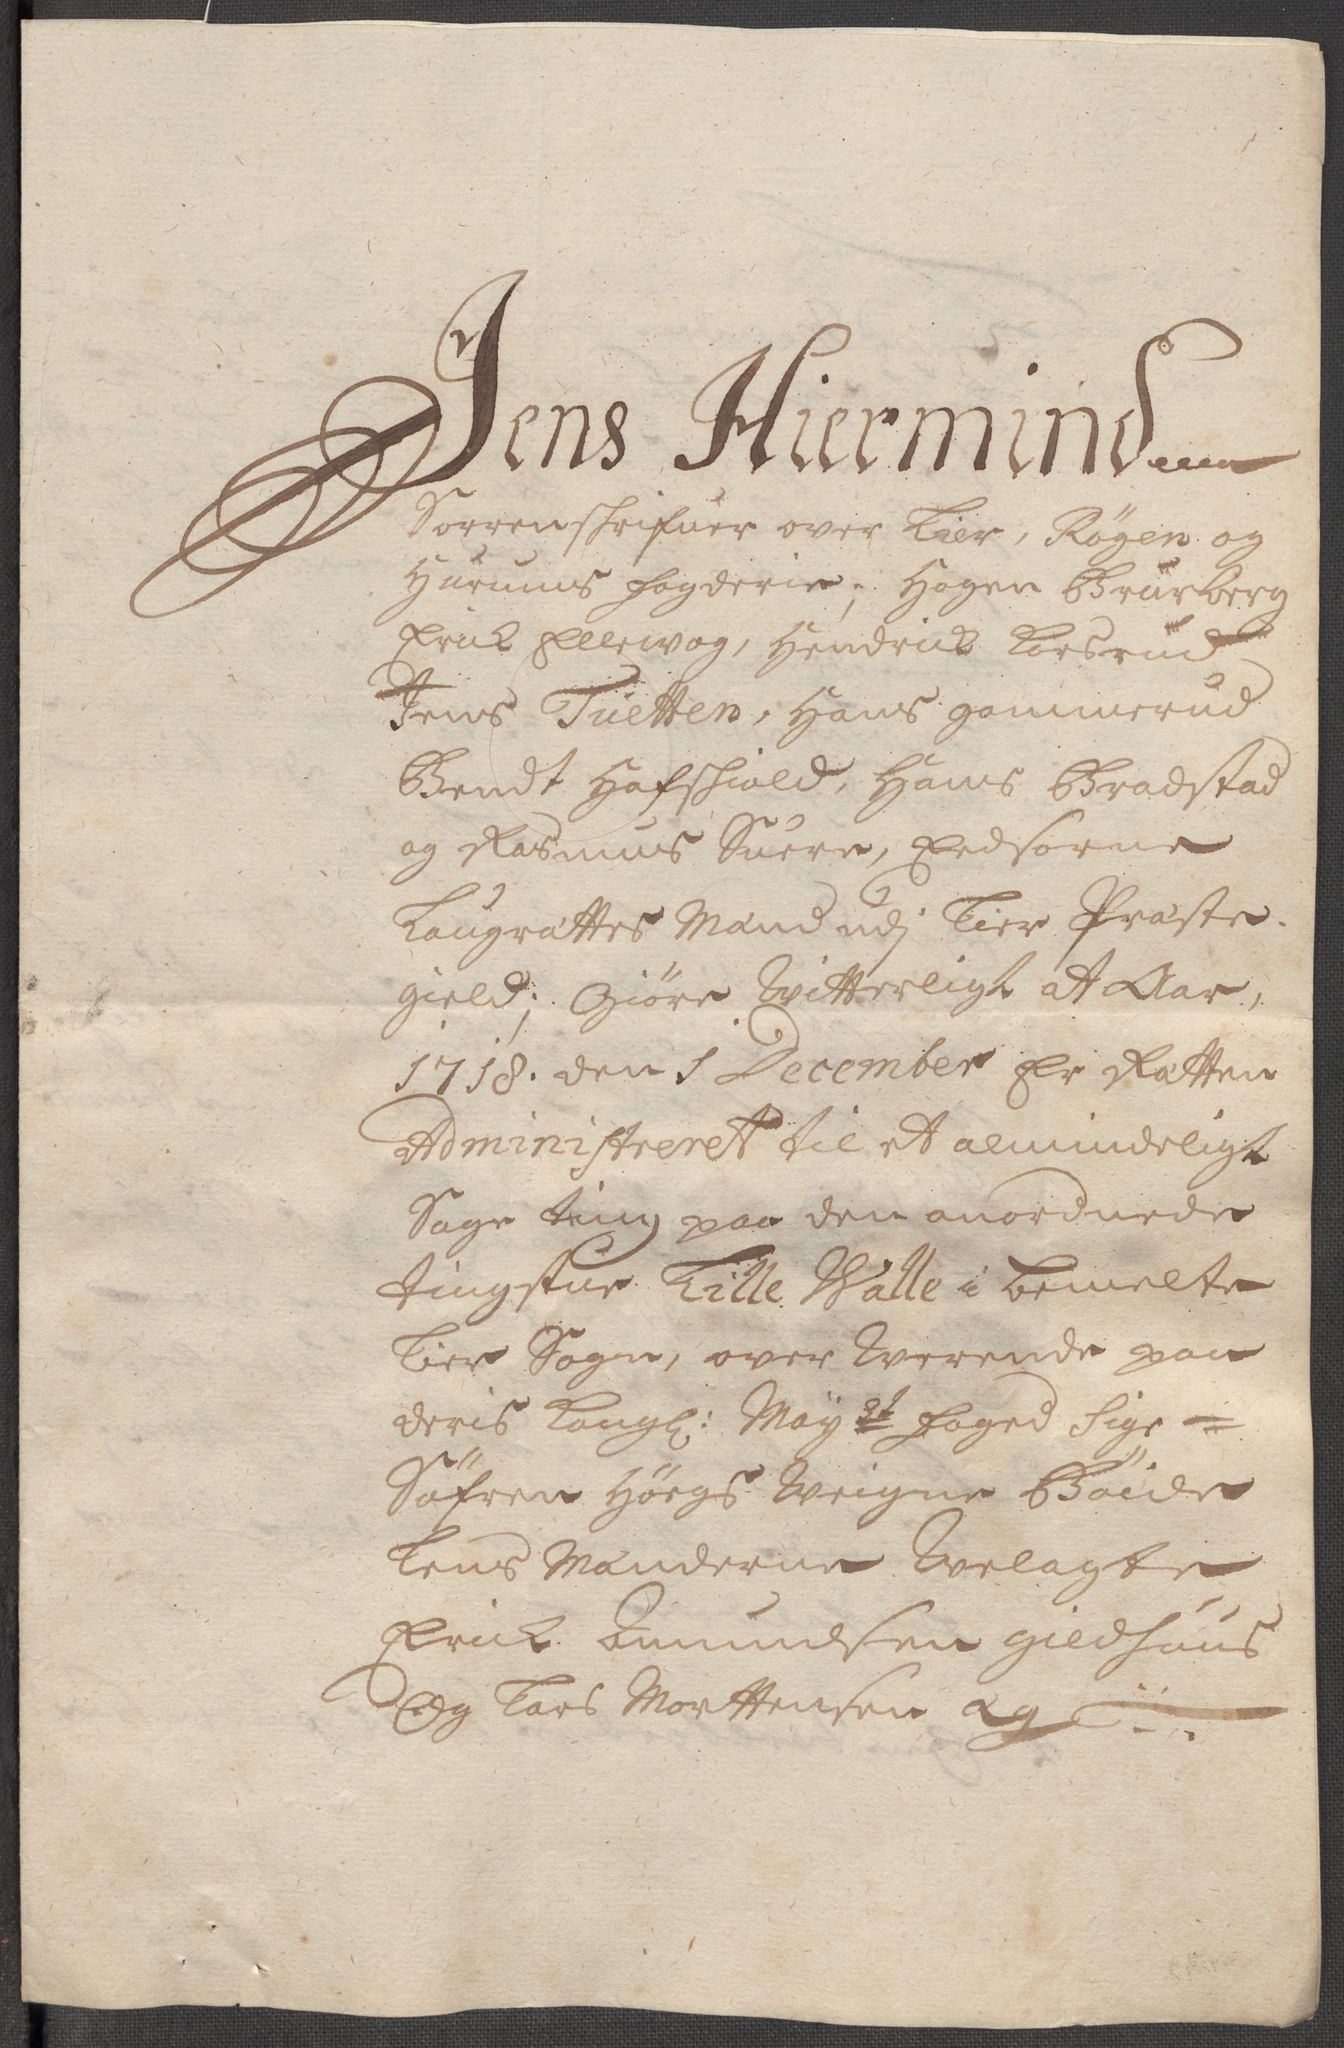 Jens Hiermind
Sorrenschrifuer over Lier, Røgen og
Hurums fogderie; Hagen Brurberg
Erich Ellewog, Hendrich Larsrud
Jens Tuetten, Hans gammerud
Bendt Hafschiold, Hans Bradstad
og Rasmus Suere, Eedsorne
Laugrættes Mænd udj Lier Præste-
gield; Giøre Witterligt at Aar,
1718. den 1 December Er Rætten
Administreret til et almindeligt
Sage ting paa den anordnede
tingstue Lille Walle i bemelte
Lier Sogn, over Werende paa
deris kongl: Mayst foged Sigr
Søfren Høegs Weigne Bøide
Lens Mænderne Welagte
Erich Amundsen gieldhuus
Og Lars Morttensen ag